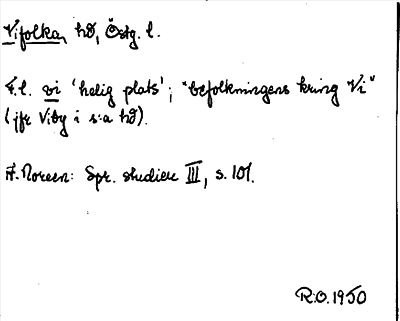 Vifolka, hd, Östg. l.
F.l. vi 'helig plats'; "befolkningens kring Vi"
(jfr Viby i s:a hd).
A. Noreen: Spr. studier III, s. 101.
R.O. 1950